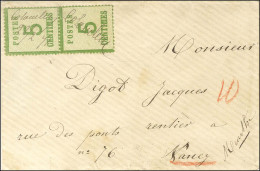 POSTES 5 CENTIMES
POSTES 5 CENTIMES
Monsieur
Digot Jacques
10
rue des ponts rentier à
nº 76 Nancy